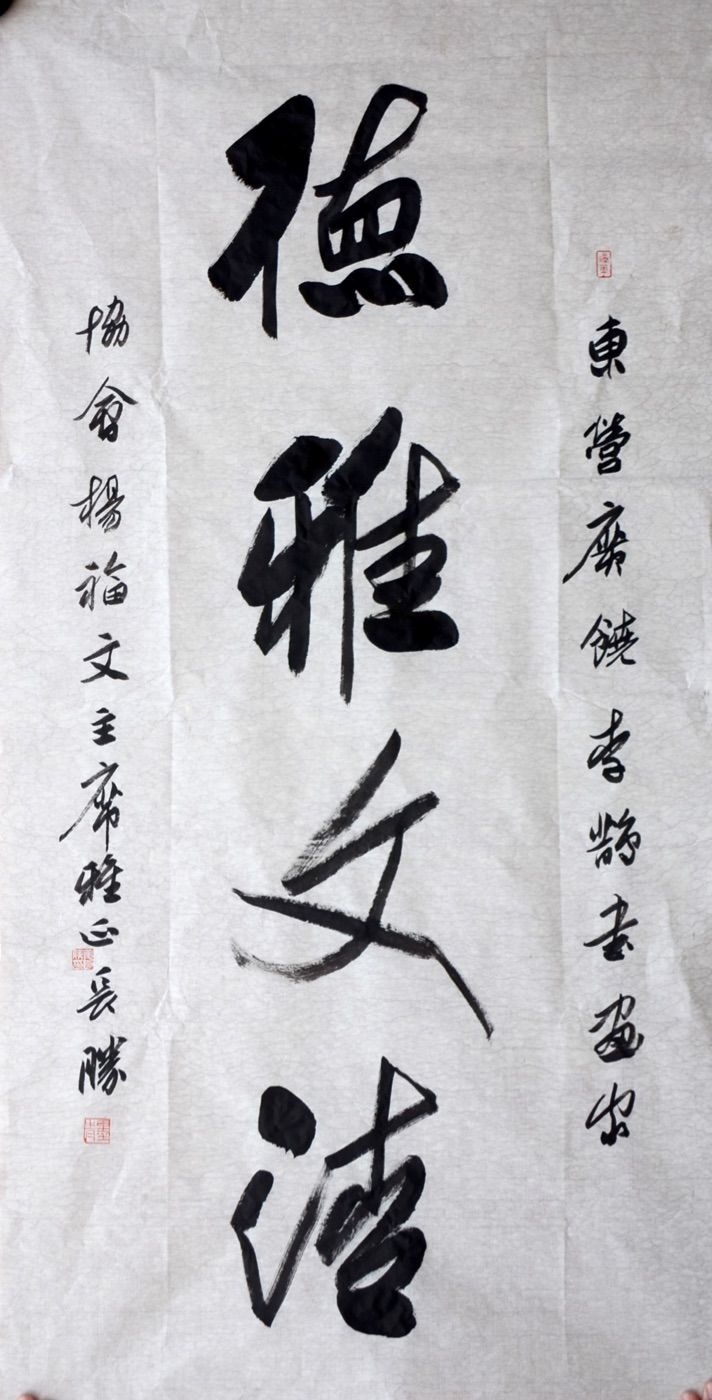 東營廣饒李鵲書畫家
德雅文清
協會楊福文主席雅正長勝